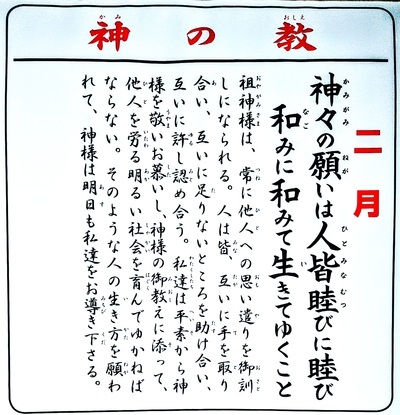 神の教
二月
神々の願いは人皆睦びに睦び
和みに和みて生きてゆくこと
祖神様は、常に他人への思い遣りを御訓
しになられる。人は皆、互いに手を取り
合い、互いに足りないところを助け合い、
互いに許し認め合う。私達は平素から神
様を敬いお慕いし、神様の御教えに添って、
他人を労る明るい社会を育んでゆかねば
ならない。そのような人の生き方を願わ
れて、神様は明日も私達をお導き下さる。